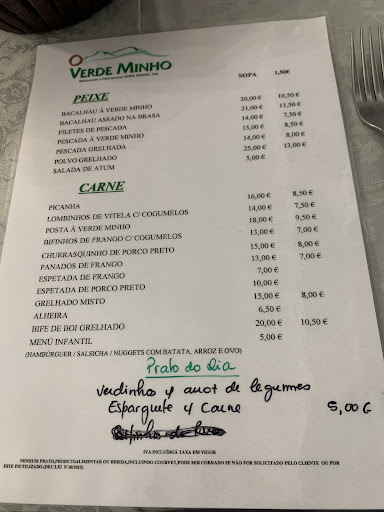 O VERDE MINHO
SOPA 1,50€
PEIXE
BACALHAU À VERDE MINHO 20,00 € 10,50 €
BACALHAU ASSADO NA BRASA 21,00 € 11,50 €
FILETES DE PESCADA 14,00 € 7,50 €
PESCADA À VERDE MINHO 15,00 € 8,50 €
PESCADA GRELHADA 14,00 € 8,00 €
POLVO GRELHADO 25,00 € 13,00 €
SALADA DE ATUM 5,00 €
CARNE
PICANHA 16,00 € 8,50 €
LOMBINHOS DE VITELA C/ COGUMELOS 14,00 € 7,50 €
POSTA À VERDE MINHO 18,00 € 9,50 €
BIFINHOS DE FRANGO C/ COGUMELOS 13,00 € 7,00 €
CHURRASQUINHO DE PORCO PRETO 15,00 € 8,00 €
PANADOS DE FRANGO 13,00 € 7,00 €
ESPETADA DE FRANGO 7,00 €
ESPETADA DE PORCO PRETO 10,00 €
GRELHADO MISTO 15,00 € 8,00 €
ALHEIRA 6,50 €
BIFE DE BOI GRELHADO 20,00 € 10,50 €
MENÚ INFANTIL 5,00 €
(HAMBÚRGUER / SALSICHA / NUGGETS COM BATATA, ARROZ E OVO)
Prato do Dia
Verdinhos c/ arroz de legumes
Esparguete c/ Carne 5,00 €
IVA INCLUÍDO À TAXA EM VIGOR
NENHUM PRATO, PRODUTO ALIMENTAR OU BEBIDA, INCLUINDO COUVERT, PODE SER COBRADO SE NÃO FOR SOLICITADO PELO CLIENTE OU POR
ESTE INUTILIZADO.(DEC.LEI N 10/2015)